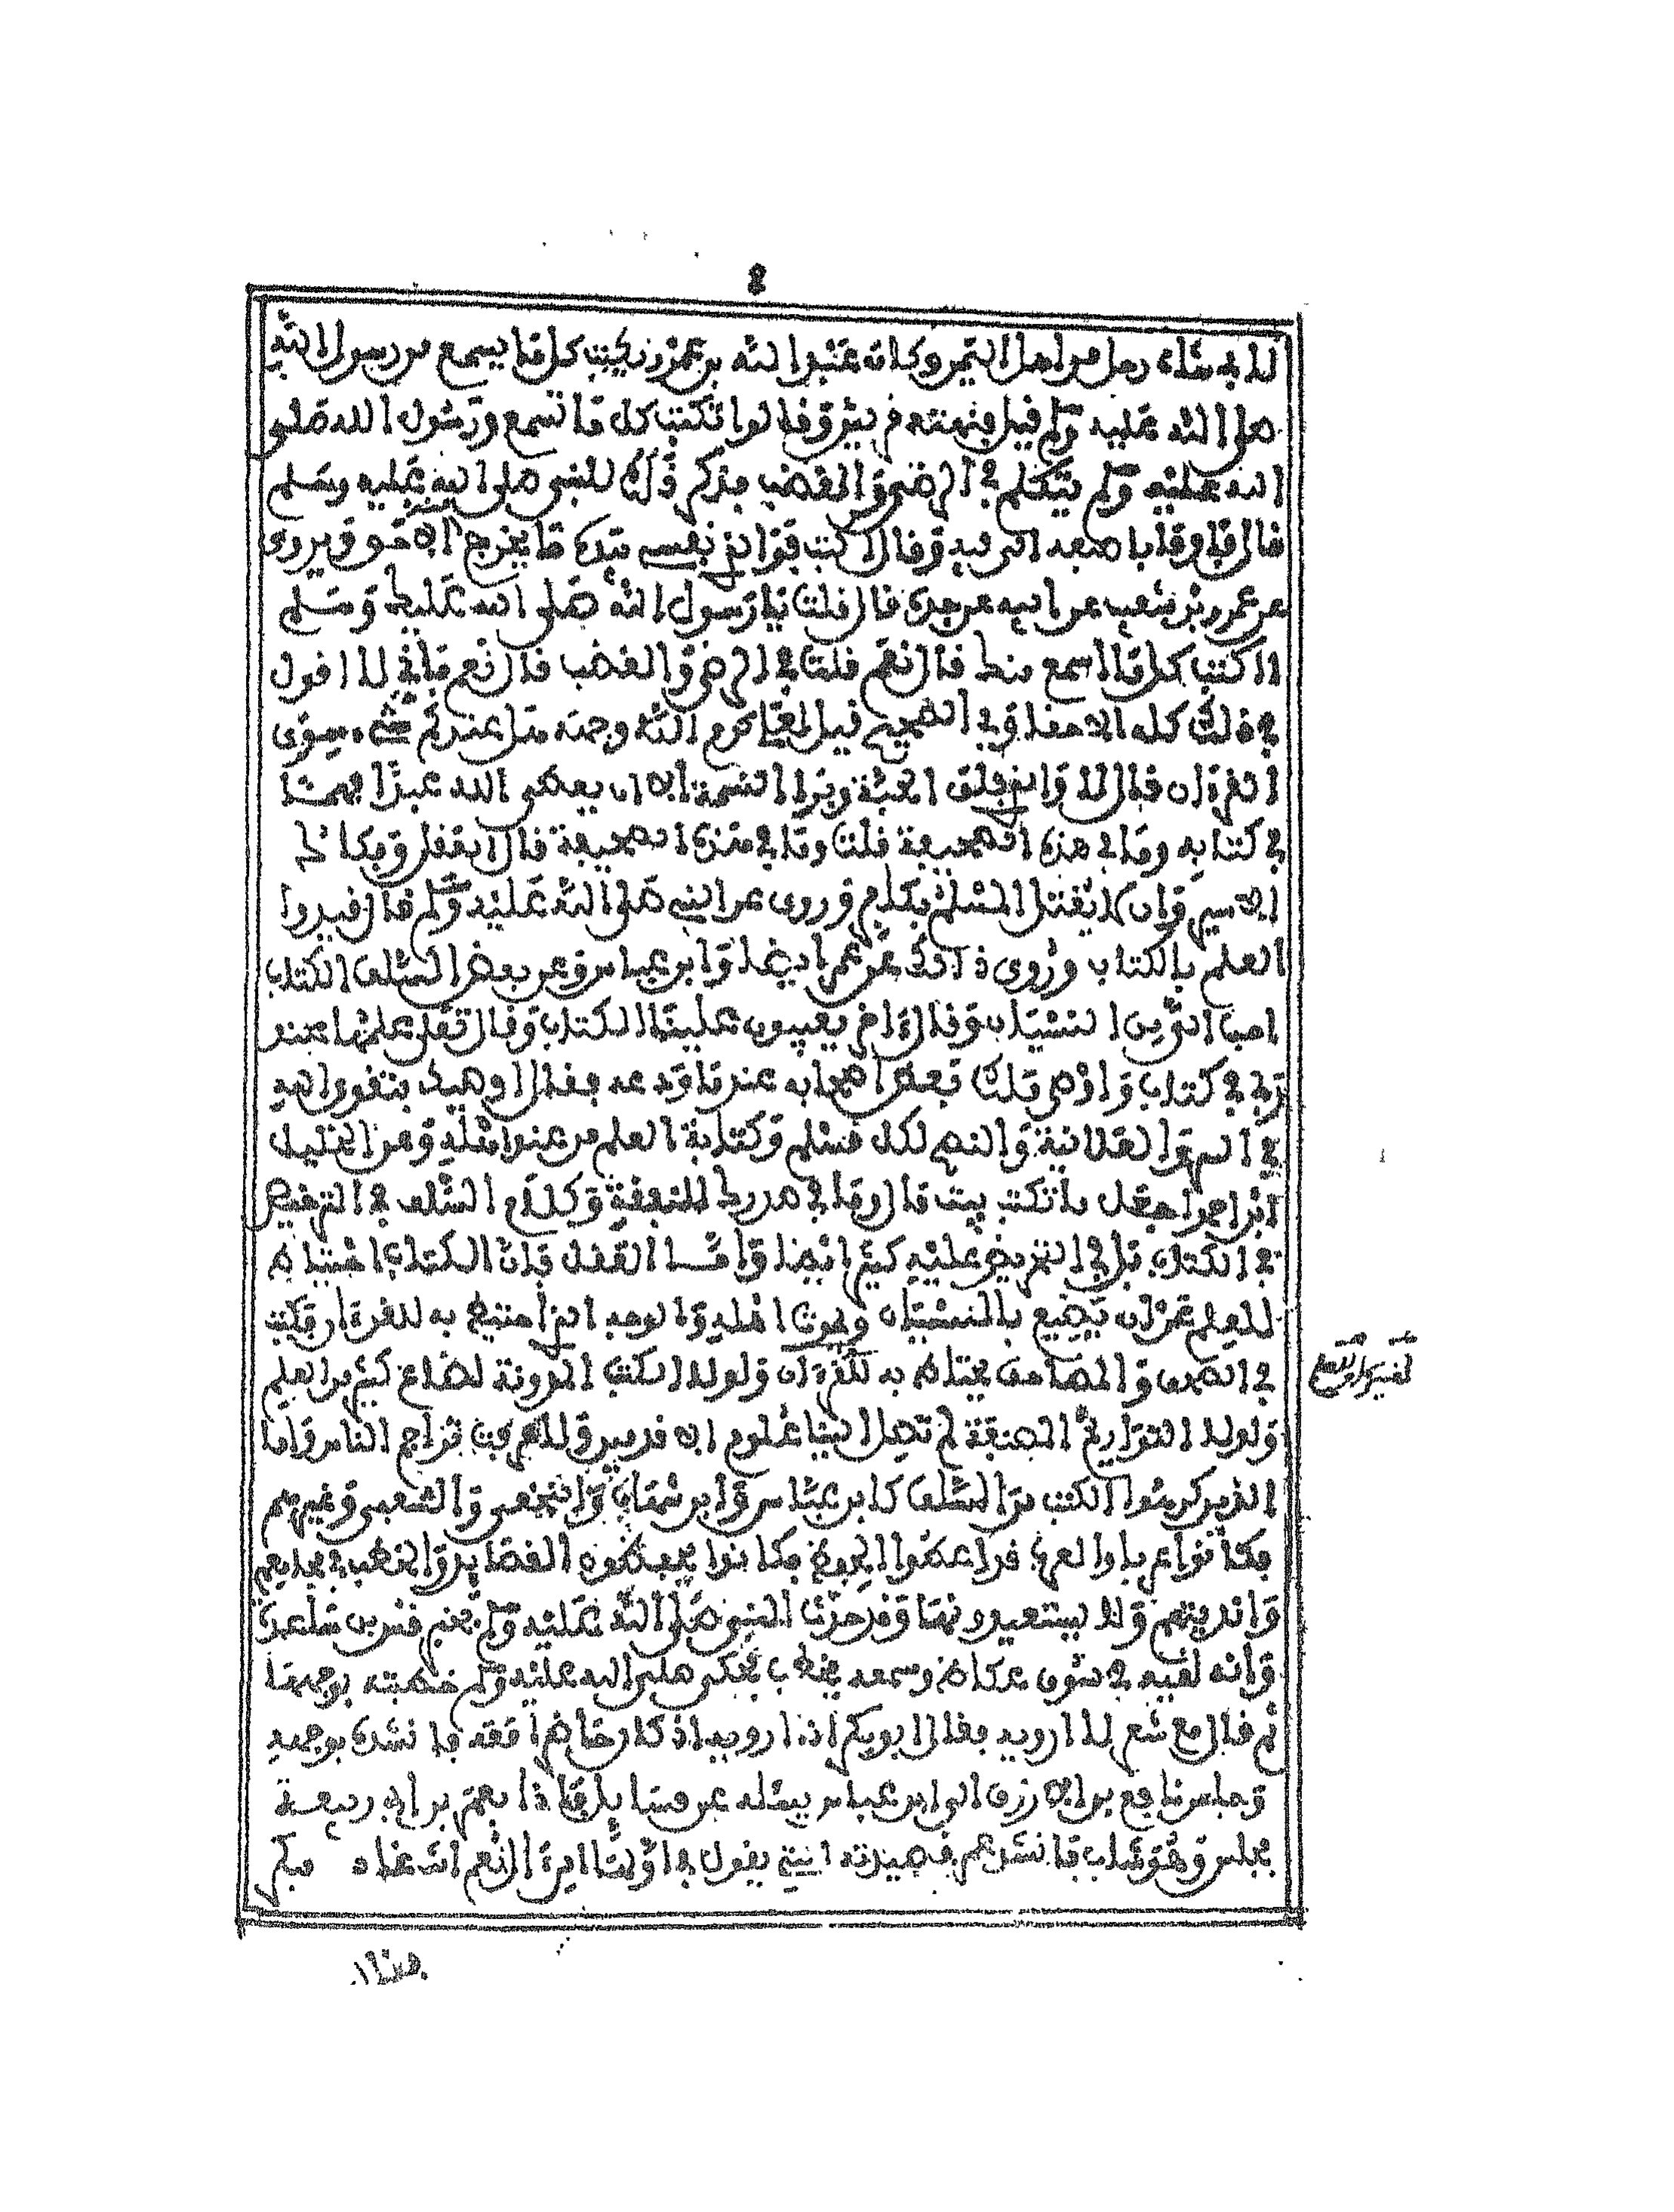 لابي شاه رجل من اهل اليمن وكان عبد الله بن عمرو يكتب كل ما يسمع من رسول الله
صلى الله عليه وسلم قيل فنهته قريش وقالوا تكتب كل ما تسمع ورسول الله صلى
الله عليه وسلم يتكلم في الرضى والغضب فذكر ذلك للنبي صلى الله عليه وسلم
قال فاومأ باصبعه الى فيه وقال اكتب فوالذي نفسي بيده ما يخرج الا حق ويروى
عن عمرو بن شعيب عن ابيه عن جده قال قلت يا رسول الله صلى الله عليك وسلم
اكتب كل ما اسمع منك قال نعم قلت في الرضى والغضب قال نعم فاني لا اقول
في ذلك كله الا حقا وفي الصحيح قيل لعلي كرم الله وجهه هل عندكم شيء سوى
القرءان قال لا والذي فلق الحبة وبرا النسمة الا ان يعطي الله عبدا فهما
في كتابه وما في هذه الصحيفة قلت وما في هذه الصحيفة قال العقل وفكاك
الاسير وان لا يقتل المسلم بكافر وروي عن النبي صلى الله عليه وسلم قال قيدوا
العلم بالكتاب وروي ذلك عن عمر ايضا وابن عباس وعن بعض السلف الكتاب
احب الي من النسيان وقال ءاخر يعيبون علينا الكتاب وقال تعلى علمها عند
ربي في كتاب واوصى مالك بعض اصحابه عند ما ودعه فقال اوصيك بتقوى الله
في السر والعلانية والنصح لكل مسلم وكتابة العلم من عند اهله وعن الخليل
اجعل ما تكتب بيت مال وما في صدرك للنفقة وكلام السلف في الترخيص
في الكتاب بل في التحريض عليه كثير ايضا واما العقل فلان الكتاب احتياط
للعلم عن ان يضيع بالنسيان وموت اهله والوجه الذي احتيط به للقرءان فكتب
في الصحف والمصاحف يحتاط به للقرءان ولولا الكتب المدونة لضاع كثير من العلم
ولولا التواريخ المصنفة لم تصل الينا علوم الاقدمين ولا عرفت تراجم الناس واما
الذين كرهوا الكتب من السلف كابن عباس وابن شهاب والنخعي والشعبي وغيرهم
فكانوا عربا والعرب قد اعطوا الحفظ فكانوا يحفظون القصائد والخطب في مجالسهم
وانديتهم ولا يستعيدونها وقد حدث النبي صلى الله عليه وسلم بخبر قس بن ساعدة
وانه لقيه في سوق عكاظ وسمعه يخطب فحكى صلى الله عليه وسلم خطبته بوجهها
ثم قال مع شعر لا ارويه فقال ابو بكر انا ارويه اذ كان حاضرا معه فانشده بوجهه
وجلس نافع بن الازرق الى ابن عباس يسئله عن مسايل فاذا بعمر بن ابي ربيعة
فجلس وهو شاب فانشدهم قصيدته التي يقول في اولها امن ءال نعم انت غاد فمبكر